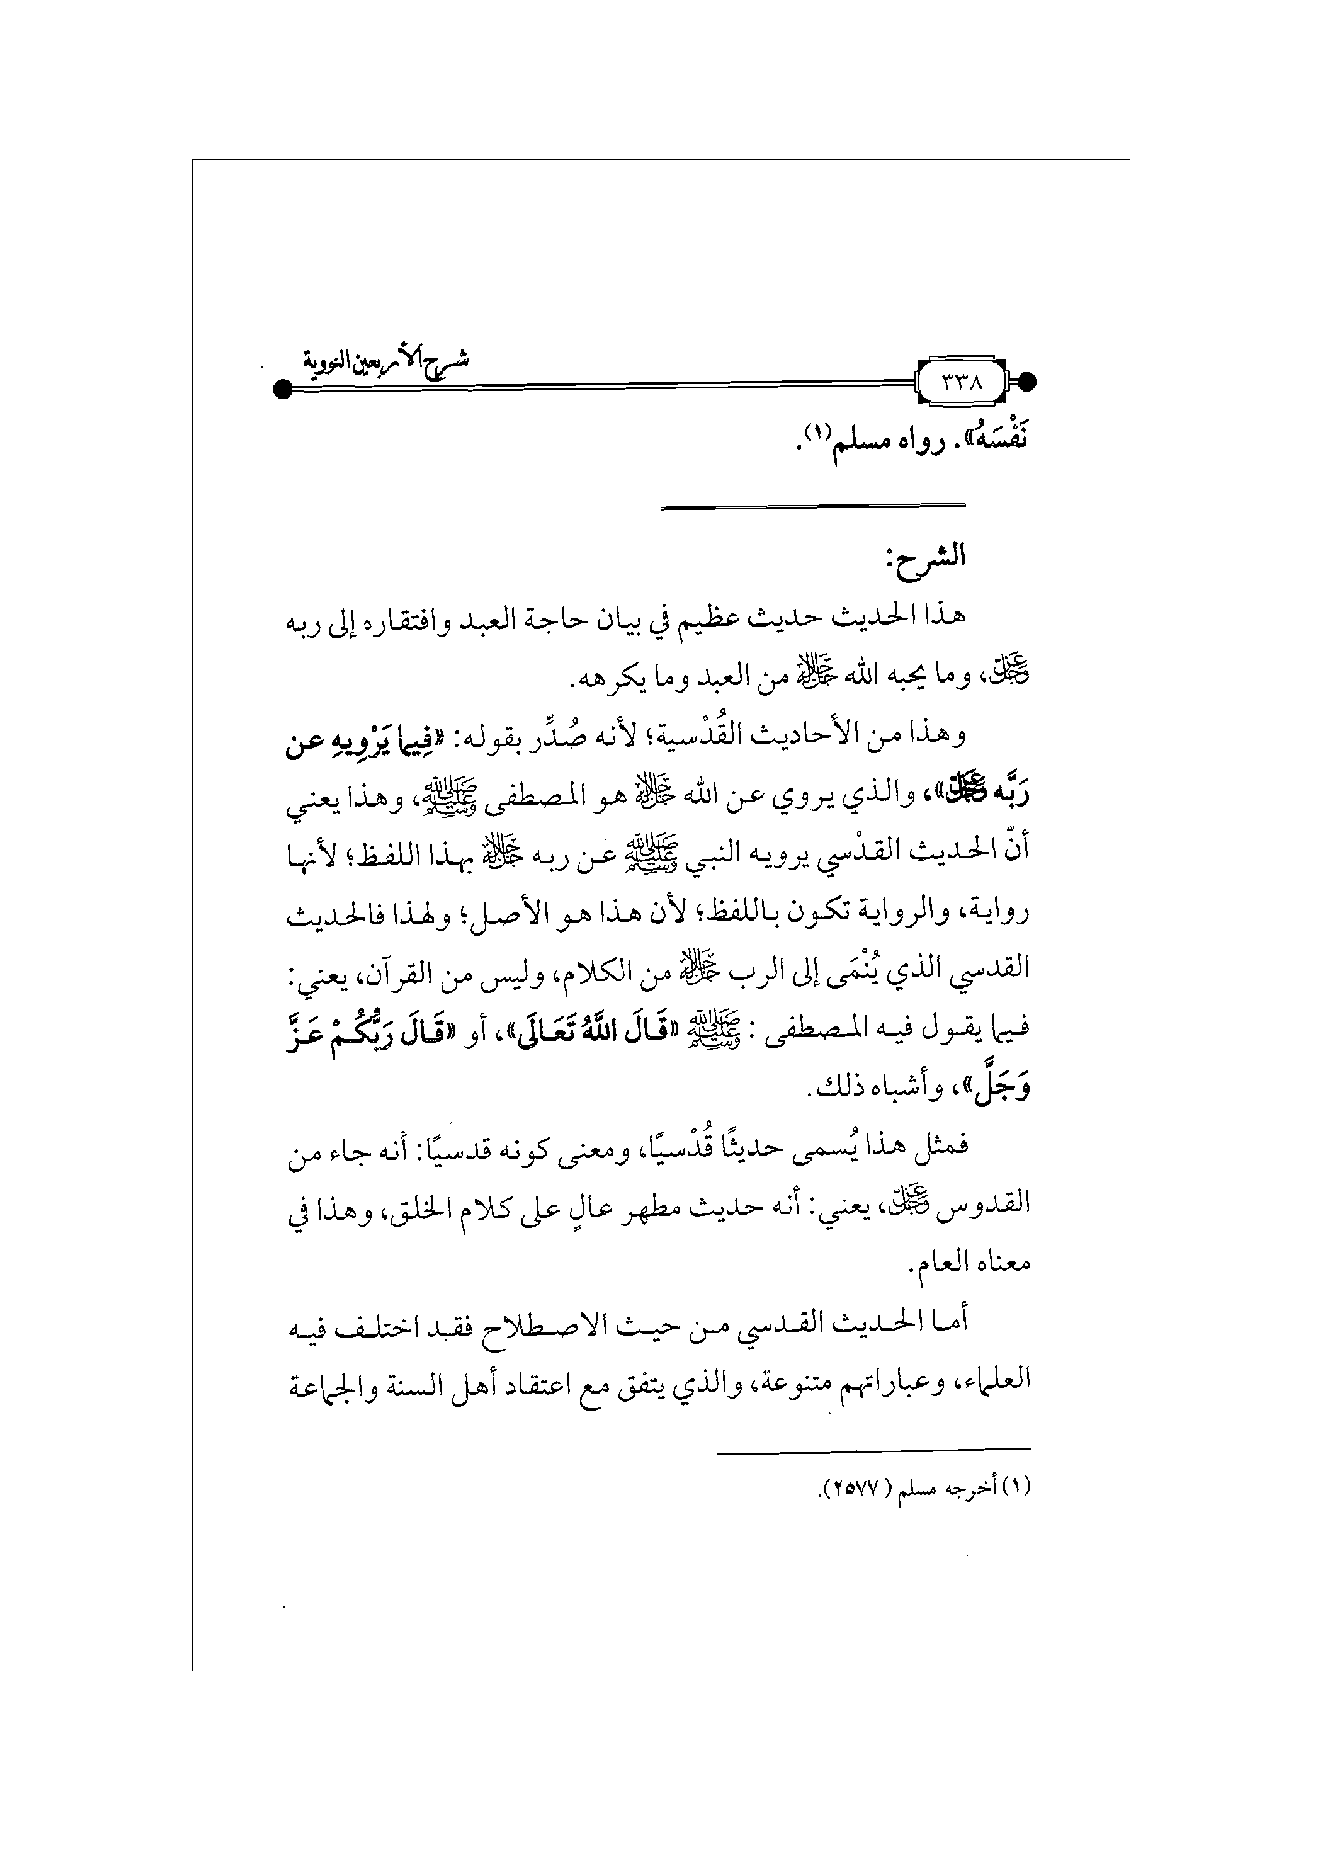 شرح الأربعين النووية
٣٣٨
نَفْسَهُ». رواه مسلم(١).
الشرح:
هذا الحديث حديث عظيم في بيان حاجة العبد وافتقاره إلى ربه
عَزَّوَجَلَّ، وما يحبه الله جَلَّجَلَالُهُ من العبد وما يكرهه.
وهذا من الأحاديث القُدْسية؛ لأنه صُدِّر بقوله: «فِيمَا يَرْوِيهِ عن
رَبَّه عَزَّوَجَلَّ»، والذي يروي عن الله جَلَّجَلَالُهُ هو المصطفى ﷺ، وهذا يعني
أنّ الحديث القدْسي يرويه النبي ﷺ عن ربه جَلَّجَلَالُهُ بهذا اللفظ؛ لأنها
رواية، والرواية تكون باللفظ؛ لأن هذا هو الأصل؛ ولهذا فالحديث
القدسي الذي يُنْمَى إلى الرب جَلَّجَلَالُهُ من الكلام، وليس من القرآن، يعني:
فيما يقول فيه المصطفى ﷺ: «قَالَ اللَّهُ تَعَالَى»، أو «قَالَ رَبُّكُمْ عَزَّ
وَجَلَّ»، وأشباه ذلك.
فمثل هذا يُسمى حديثًا قُدْسيًا، ومعنى كونه قدسيًا: أنه جاء من
القدوس عَزَّوَجَلَّ، يعني: أنه حديث مطهر عالٍ على كلام الخلق، وهذا في
معناه العام.
أما الحديث القدسي من حيث الاصطلاح فقد اختلف فيه
العلماء، وعباراتهم متنوعة، والذي يتفق مع اعتقاد أهل السنة والجماعة
(١) أخرجه مسلم (٢٥٧٧).